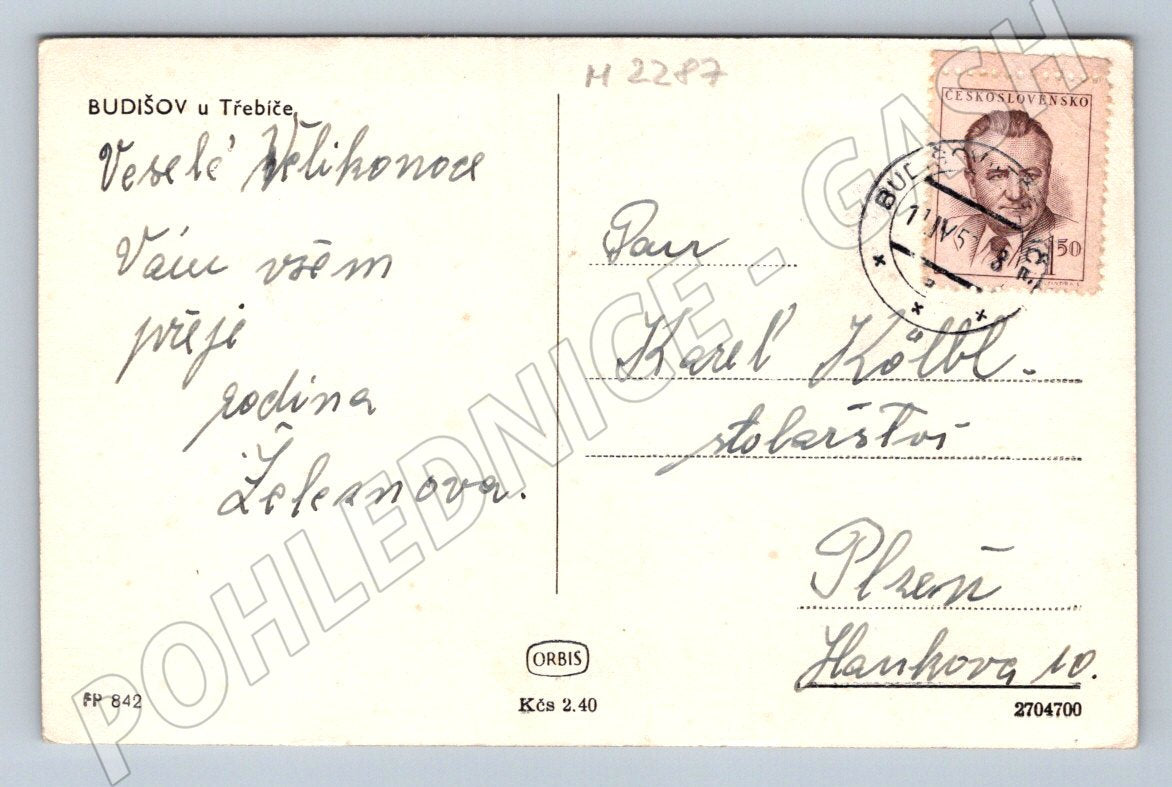 BUDIŠOV u Třebíče
Veselé Velikonoce
Vám všem
přeje
rodina
Železnova.
M 2287
ČESKOSLOVENSKO
1.50
Pan
Karel Kölbl.
stolařství
Plzeň
Hankova 10.
ORBIS
Kčs 2.40
FP 842
2704700
POHLEDNICE - GASH